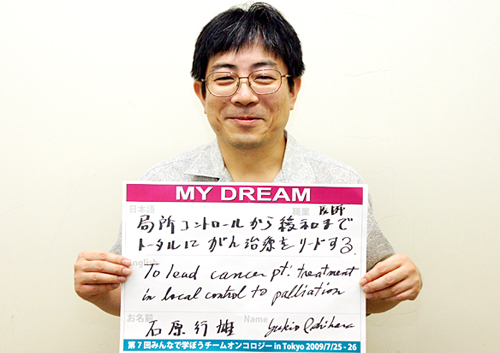 MY DREAM
日本語
職業 医師
局所コントロールから緩和まで
トータルにがん治療をリードする。
English
To lead cancer pt! treatment
in local control to palliation
お名前
Name
石原行雄 Yukio Ishihara
第7回みんなで学ぼうチームオンコロジー in Tokyo 2009/7/25 - 26